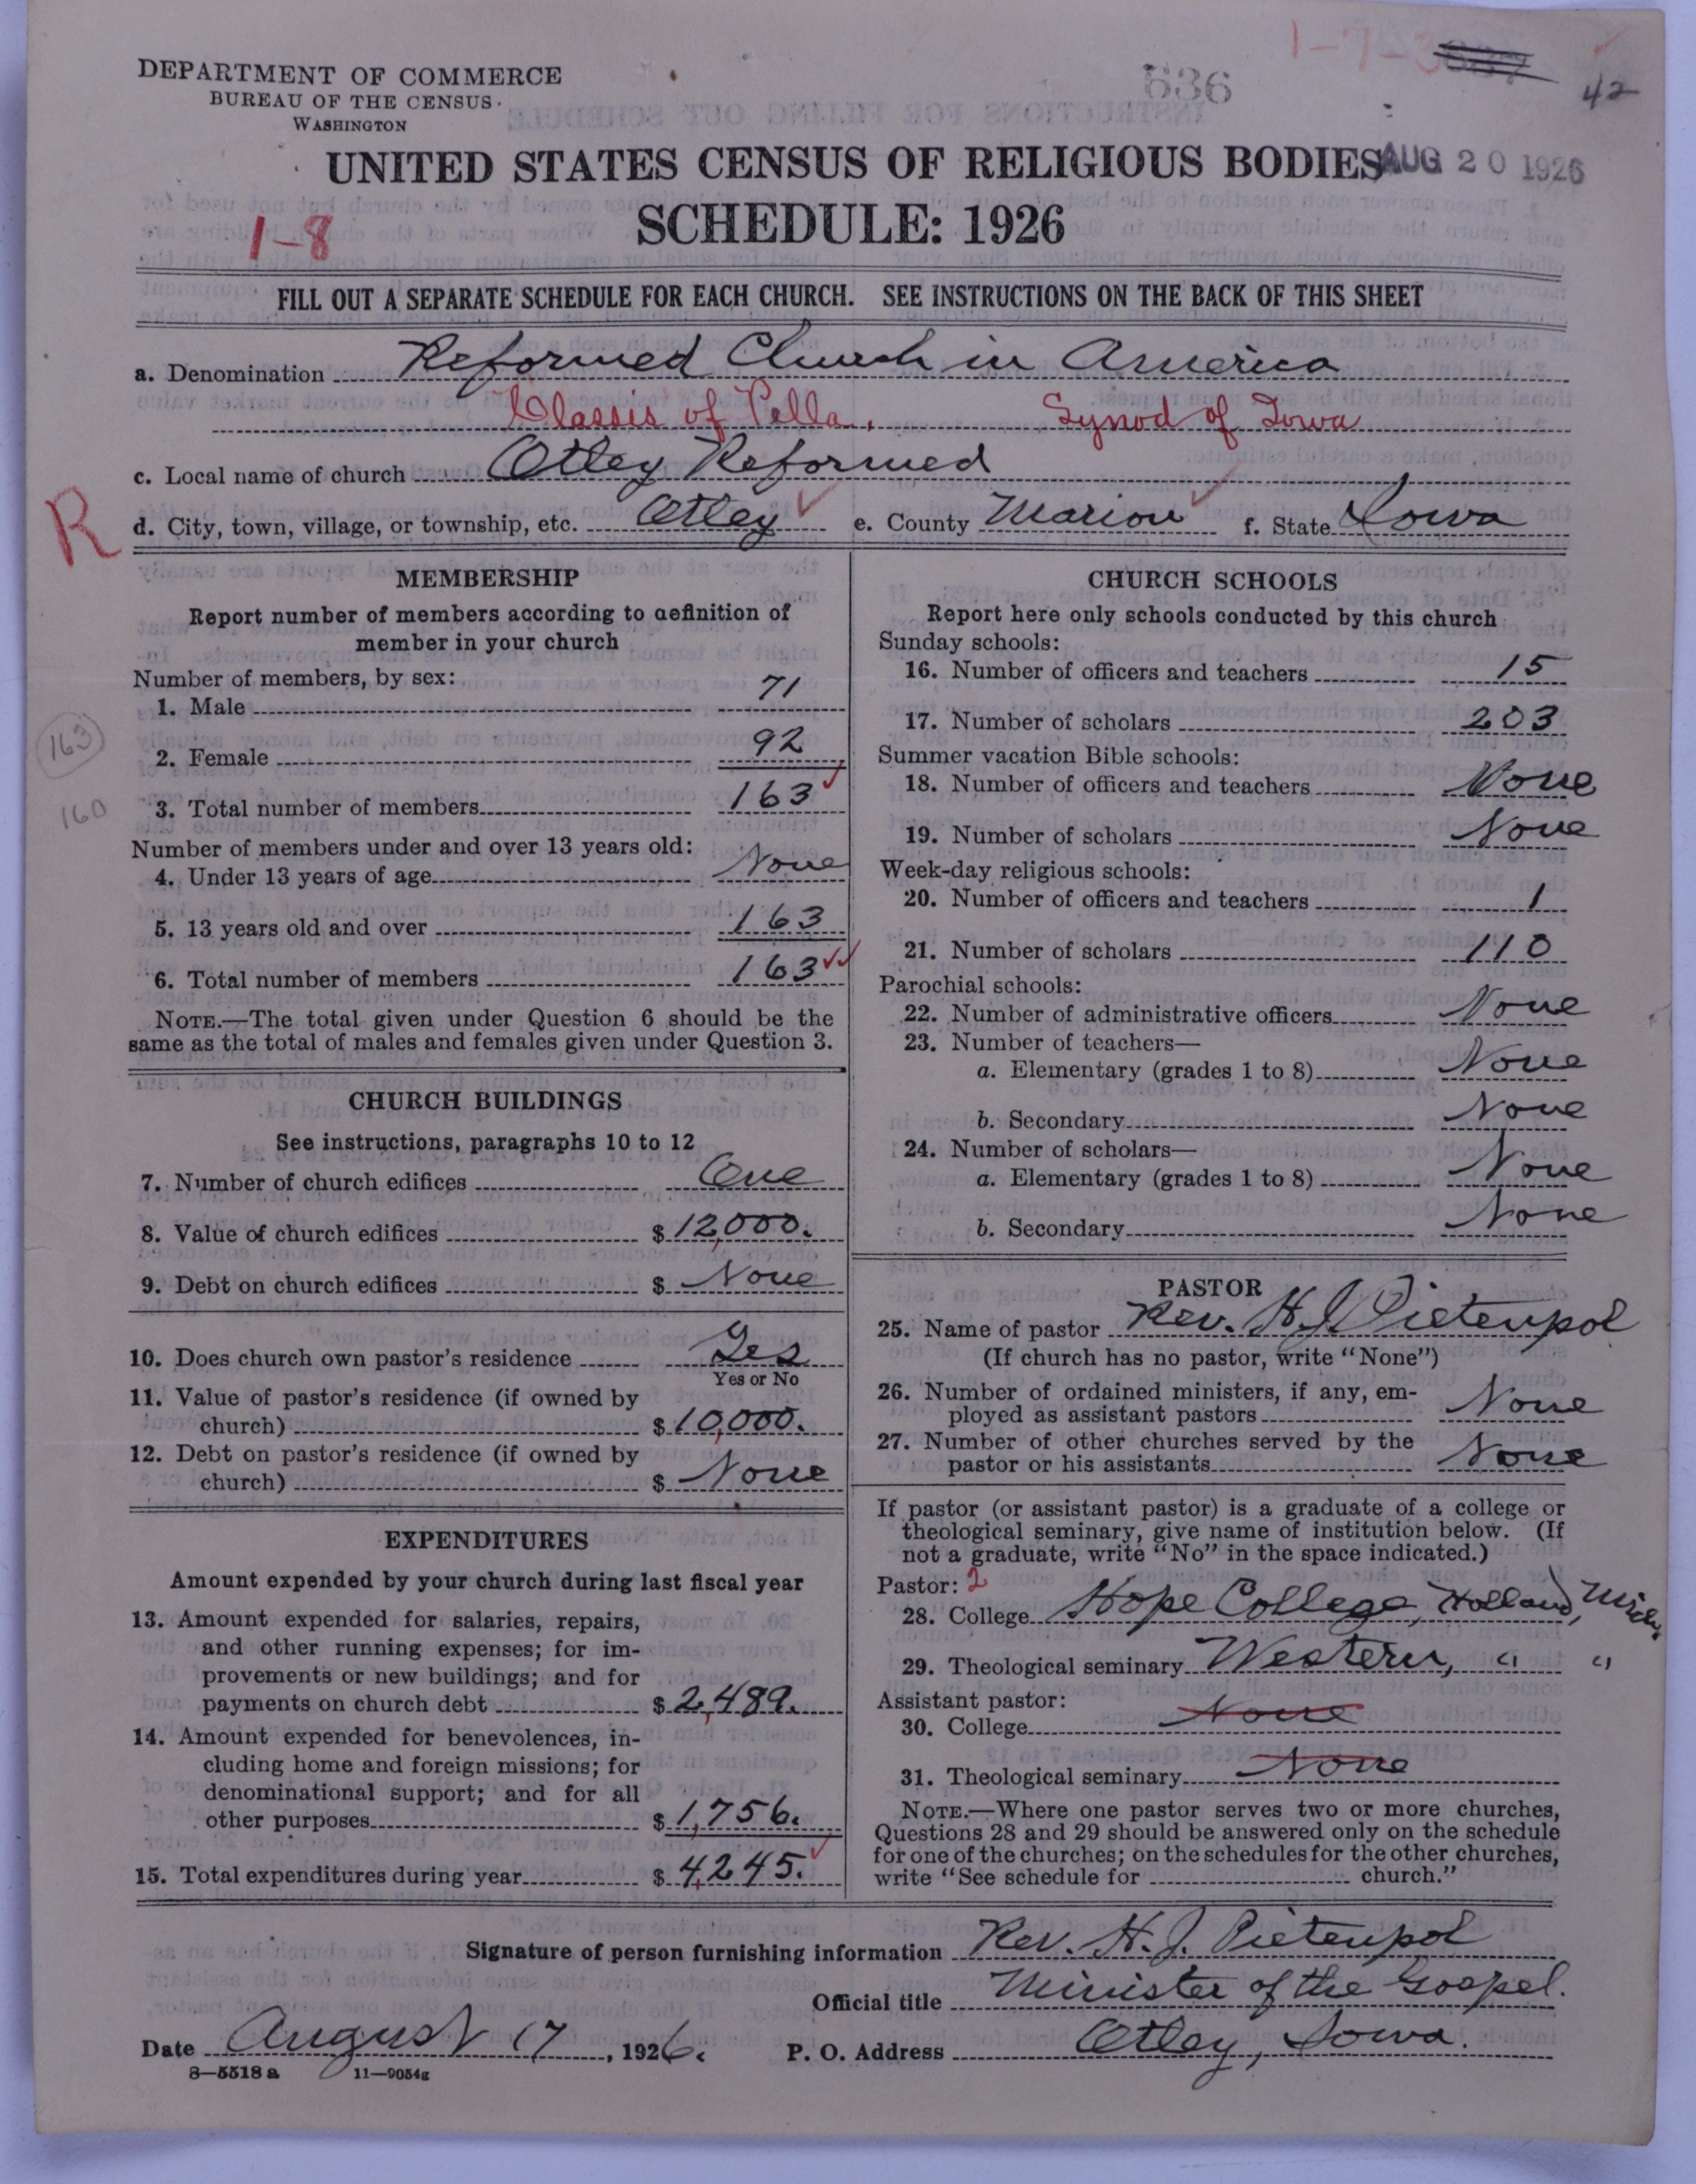 1-7-3
42
DEPARTMENT OF COMMERCE
BUREAU OF THE CENSUS
WASHINGTON
636
UNITED STATES CENSUS OF RELIGIOUS BODIES
AUG 20 1926
SCHEDULE: 1926
1-8
FILL OUT A SEPARATE SCHEDULE FOR EACH CHURCH. SEE INSTRUCTIONS ON THE BACK OF THIS SHEET
a. Denomination Reformed Church in America
Classis of Pella, Synod of Iowa
c. Local name of church Otley Reformed
R
d. City, town, village, or township, etc. Otley e. County Marion f. State Iowa
MEMBERSHIP
Report number of members according to definition of
member in your church
Number of members, by sex:
1. Male 71
2. Female 92
163
3. Total number of members 163
160
Number of members under and over 13 years old:
4. Under 13 years of age None
5. 13 years old and over 163
6. Total number of members 163
NOTE.—The total given under Question 6 should be the
same as the total of males and females given under Question 3.
CHURCH BUILDINGS
See instructions, paragraphs 10 to 12
7. Number of church edifices One
8. Value of church edifices $ 12,000.
9. Debt on church edifices $ None
10. Does church own pastor's residence Yes
Yes or No
11. Value of pastor's residence (if owned by
church) $ 10,000.
12. Debt on pastor's residence (if owned by
church) $ None
EXPENDITURES
Amount expended by your church during last fiscal year
13. Amount expended for salaries, repairs,
and other running expenses; for im-
provements or new buildings; and for
payments on church debt $ 2,489.
14. Amount expended for benevolences, in-
cluding home and foreign missions; for
denominational support; and for all
other purposes $ 1,756.
15. Total expenditures during year $ 4,245.
CHURCH SCHOOLS
Report here only schools conducted by this church
Sunday schools:
16. Number of officers and teachers 15
17. Number of scholars 203
Summer vacation Bible schools:
18. Number of officers and teachers None
19. Number of scholars None
Week-day religious schools:
20. Number of officers and teachers 1
21. Number of scholars 110
Parochial schools:
22. Number of administrative officers None
23. Number of teachers—
a. Elementary (grades 1 to 8) None
b. Secondary None
24. Number of scholars—
a. Elementary (grades 1 to 8) None
b. Secondary None
PASTOR
25. Name of pastor Rev. H. J. Pietenpol
(If church has no pastor, write "None")
26. Number of ordained ministers, if any, em-
ployed as assistant pastors None
27. Number of other churches served by the
pastor or his assistants None
If pastor (or assistant pastor) is a graduate of a college or
theological seminary, give name of institution below. (If
not a graduate, write "No" in the space indicated.)
Pastor: 2
28. College Hope College, Holland, Mich.
29. Theological seminary Western, " "
Assistant pastor:
30. College None
31. Theological seminary None
NOTE.—Where one pastor serves two or more churches,
Questions 28 and 29 should be answered only on the schedule
for one of the churches; on the schedules for the other churches,
write "See schedule for church."
Signature of person furnishing information Rev. H. J. Pietenpol
Official title Minister of the Gospel.
Date August 17, 1926. P. O. Address Otley, Iowa.
8—5518 a 11—9054g